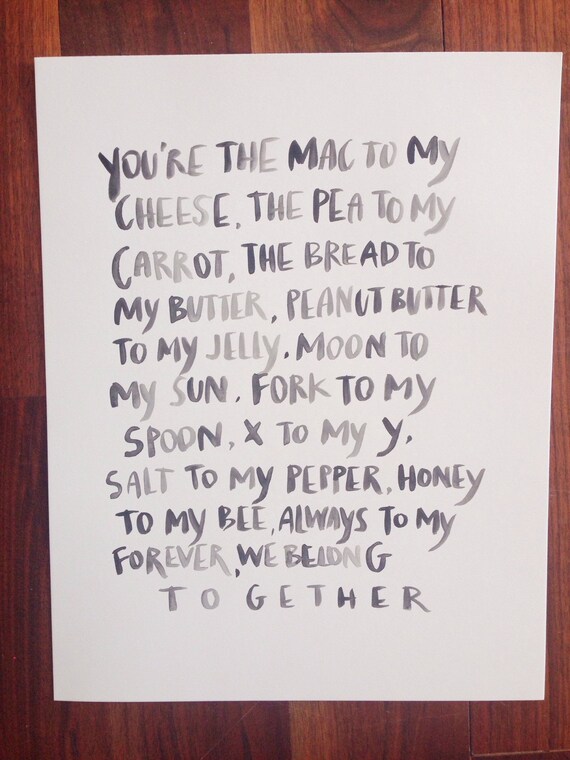 YOU'RE THE MAC TO MY
CHEESE, THE PEA TO MY
CARROT, THE BREAD TO
MY BUTTER, PEANUT BUTTER
TO MY JELLY. MOON TO
MY SUN. FORK TO MY
SPOON, X TO MY Y.
SALT TO MY PEPPER, HONEY
TO MY BEE, ALWAYS TO MY
FOREVER, WE BELONG
TOGETHER